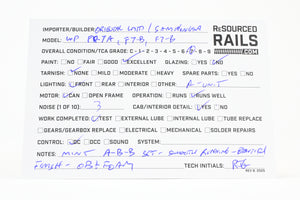 IMPORTER/BUILDER ORIENTAL LTD / SAMHONGSA
RESOURCED
RAILS
.COM
MODEL: WP FP-7A, F-7B, F7-B
OVERALL CONDITION/TCA GRADE: C-1-2-3-4-5-6-7-8-9
PAINT: NO FAIR GOOD EXCELLENT GLAZING: YES NO
TARNISH: NONE MILD MODERATE HEAVY SPARE PARTS: YES NO
LIGHTING: FRONT REAR INTERIOR OTHER: A-UNIT
MOTOR: CAN OPEN FRAME OPERATION: RUNS RUNS WELL
NOISE (1 OF 10): 3 CAB/INTERIOR DETAIL: YES NO
WORK COMPLETED: TEST EXTERNAL LUBE INTERNAL LUBE TUBE REPLACE
GEARS/GEARBOX REPLACE ELECTRICAL MECHANICAL SOLDER REPAIRS
CONTROL: DC DCC SOUND SYSTEM:
NOTES: MINT A-B-B SET - SMOOTH RUNNING -
FINISH - OB & FOAM TECH INITIALS:
REV 6. 2025